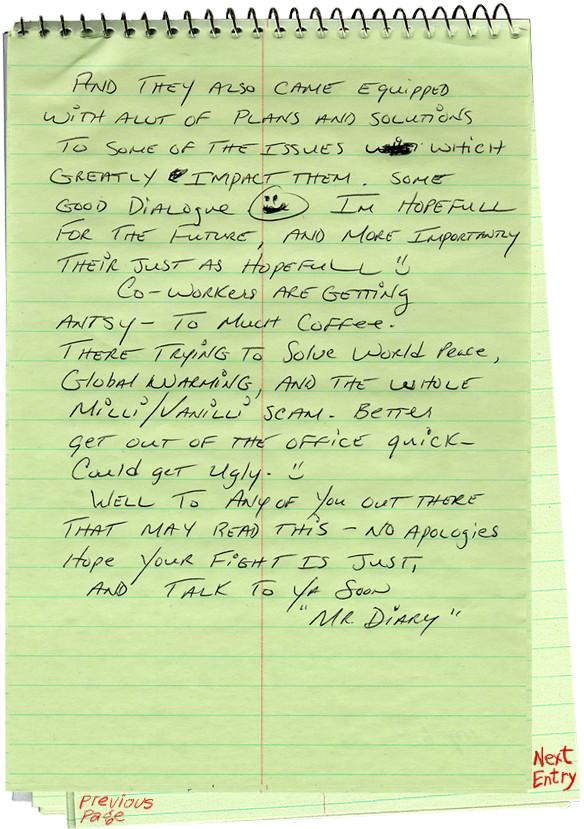 AND THEY ALSO CAME EQUIPPED
WITH ALOT OF PLANS AND SOLUTIONS
TO SOME OF THE ISSUES WHICH
GREATLY IMPACT THEM. SOME
GOOD DIALOGUE I'M HOPEFULL
FOR THE FUTURE, AND MORE IMPORTANTLY
THEIR JUST AS HOPEFULL
CO-WORKERS ARE GETTING
ANTSY - TO MUCH COFFEE.
THERE TRYING TO SOLVE WORLD PEACE,
GLOBAL WARMING, AND THE WHOLE
MILLI/VANILLI SCAM. BETTER
GET OUT OF THE OFFICE QUICK-
COULD GET UGLY.
WELL TO ANY OF YOU OUT THERE
THAT MAY READ THIS - NO APOLOGIES
HOPE YOUR FIGHT IS JUST,
AND TALK TO YA SOON
"MR. DIARY"
Next
Entry
Previous
Page